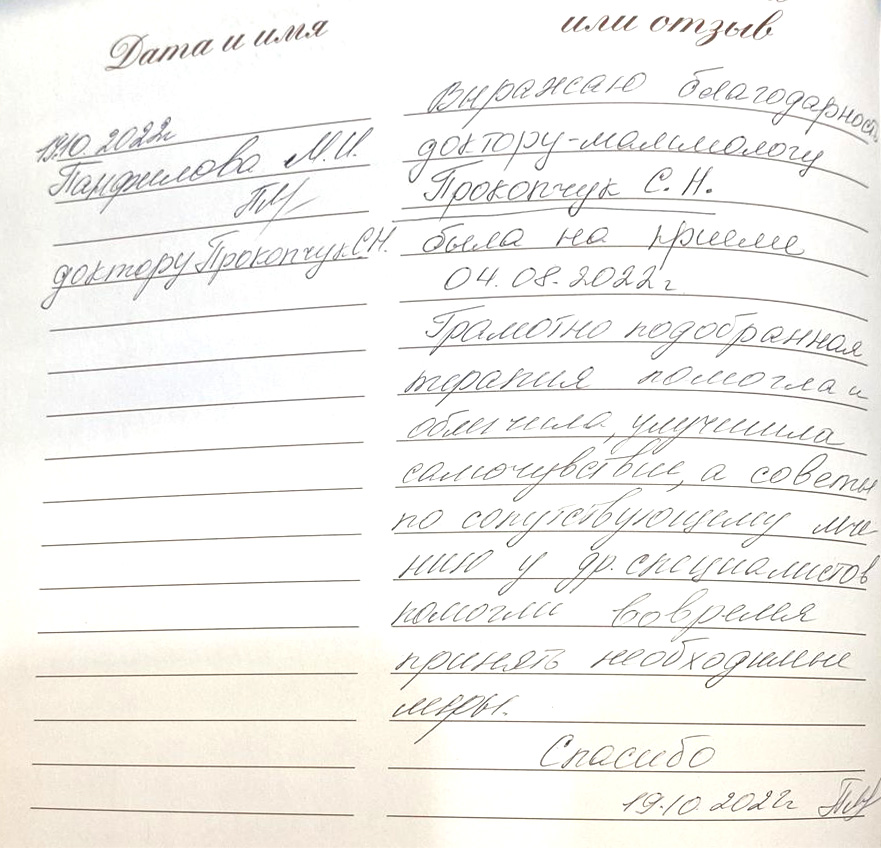 Дата и имя
19.10.2022г
Панфилова М.И.
доктору Прокопчук С.Н.
или отзыв
Выражаю благодарность
доктору-маммологу
Прокопчук С.Н.
была на приеме
04.08.2022г
Грамотно подобранная
терапия помогла и
облегчила, улучшила
самочувствие, а советы
по сопутствующему лече
нию у др. специалистов
помогли вовремя
принять необходимые
меры.
Спасибо
19.10.2022г